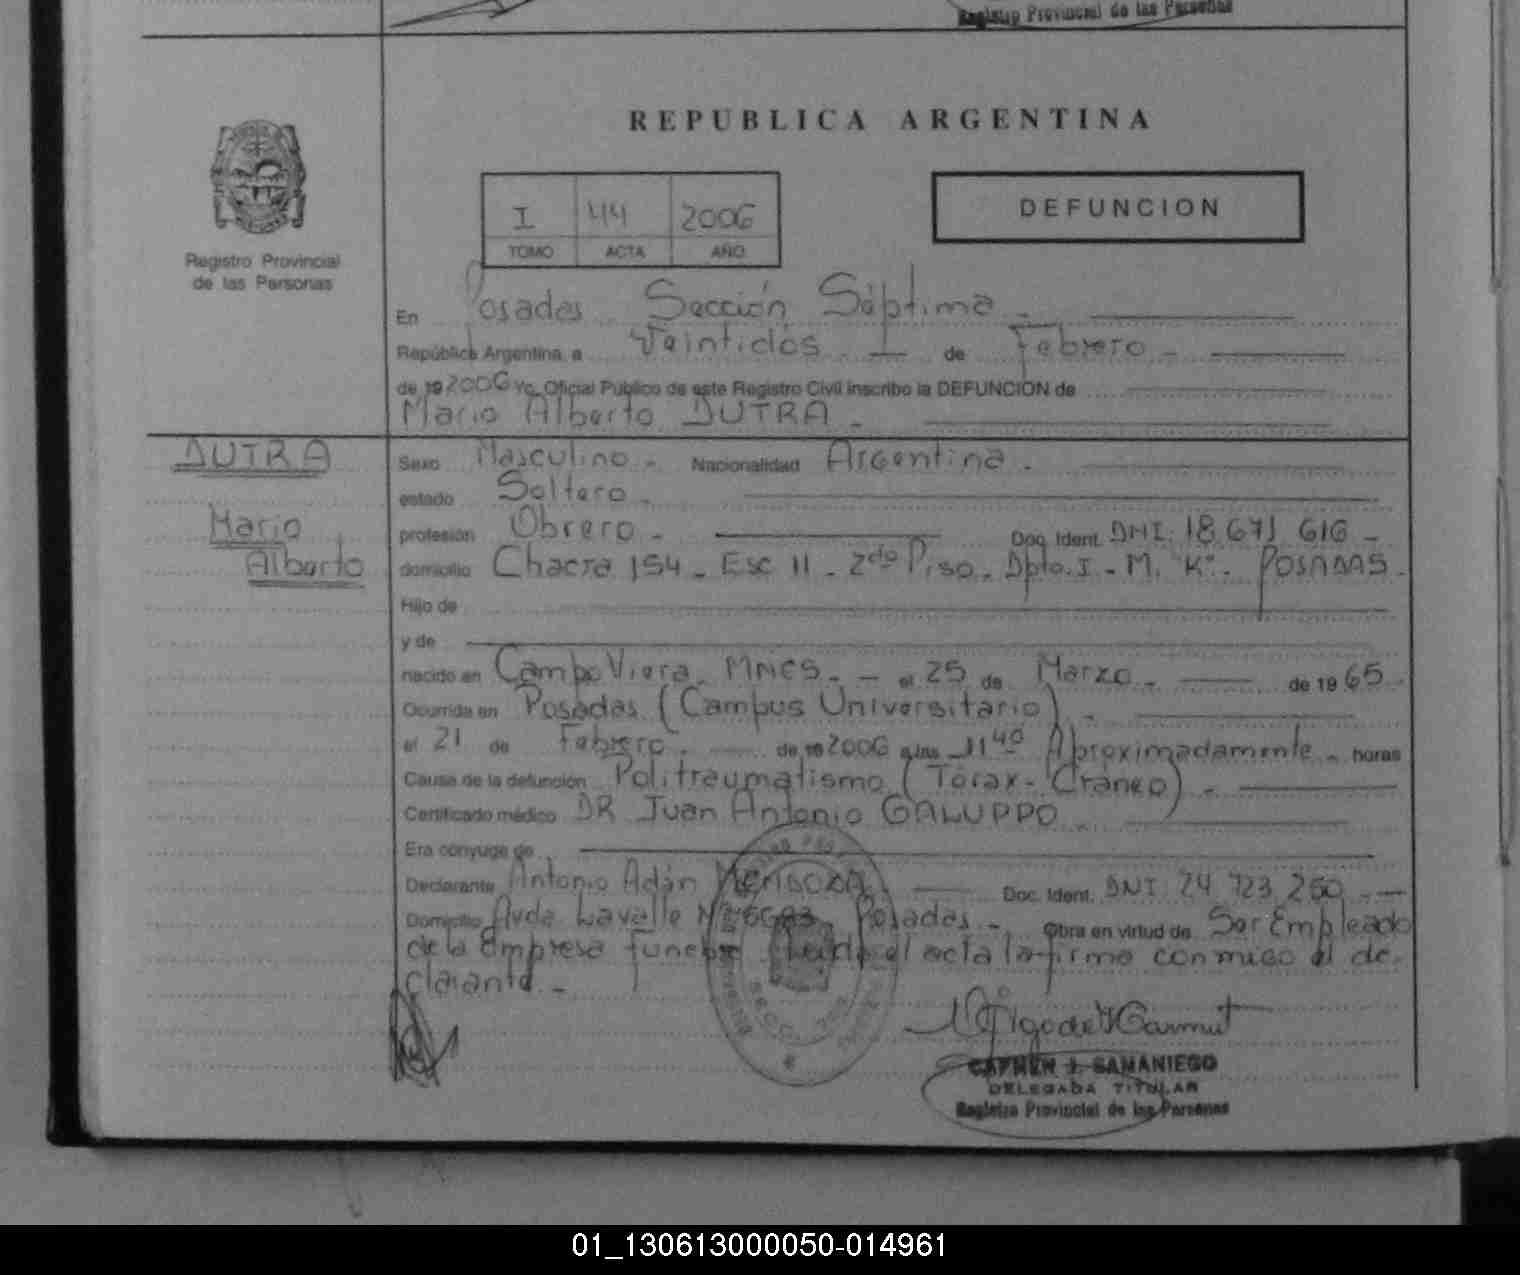 Registro Provincial de las Personas
REPUBLICA ARGENTINA
Registro Provincial
de las Personas
I 44 2006
TOMO ACTA AÑO
DEFUNCION
En Posadas Sección Séptima -
República Argentina, a Veinticlós - de Febrero -
de 19 2006 Yo, Oficial Público de este Registro Civil inscribo la DEFUNCION de
Mario Alberto DUTRA -
DUTRA
Mario
Alberto
Sexo Masculino - Nacionalidad Argentina -
estado Soltero -
profesión Obrero - Doc. Ident. DNI: 18 671 616 -
domicilio Chacra 154 - Esc 11 - 2do Piso - Dpto. I - M. "K" - POSADAS -
Hijo de
y de
nacido en Campo Viera - MNES - - el 25 de Marzo - de 19 65 -
Ocurrida en Posadas (Campus Universitario) -
el 21 de Febrero - de 19 2006 a las 11 40 Aproximadamente - horas
Causa de la defunción Politraumatismo (Tórax - Cráneo) -
Certificado médico DR Juan Antonio GALUPPO
Era cónyuge de
Declarante Antonio Adán MENDOZA - Doc. Ident. DNI: 24 723 260 -
Domicilio Avda. Lavalle Nº Posadas - Obra en virtud de Ser Empleado
de la Empresa funebre Leída el acta la firma conmigo el de-
clarante -
CARMEN J. SAMANIEGO
DELEGADA TITULAR
Registro Provincial de las Personas
01_130613000050-014961